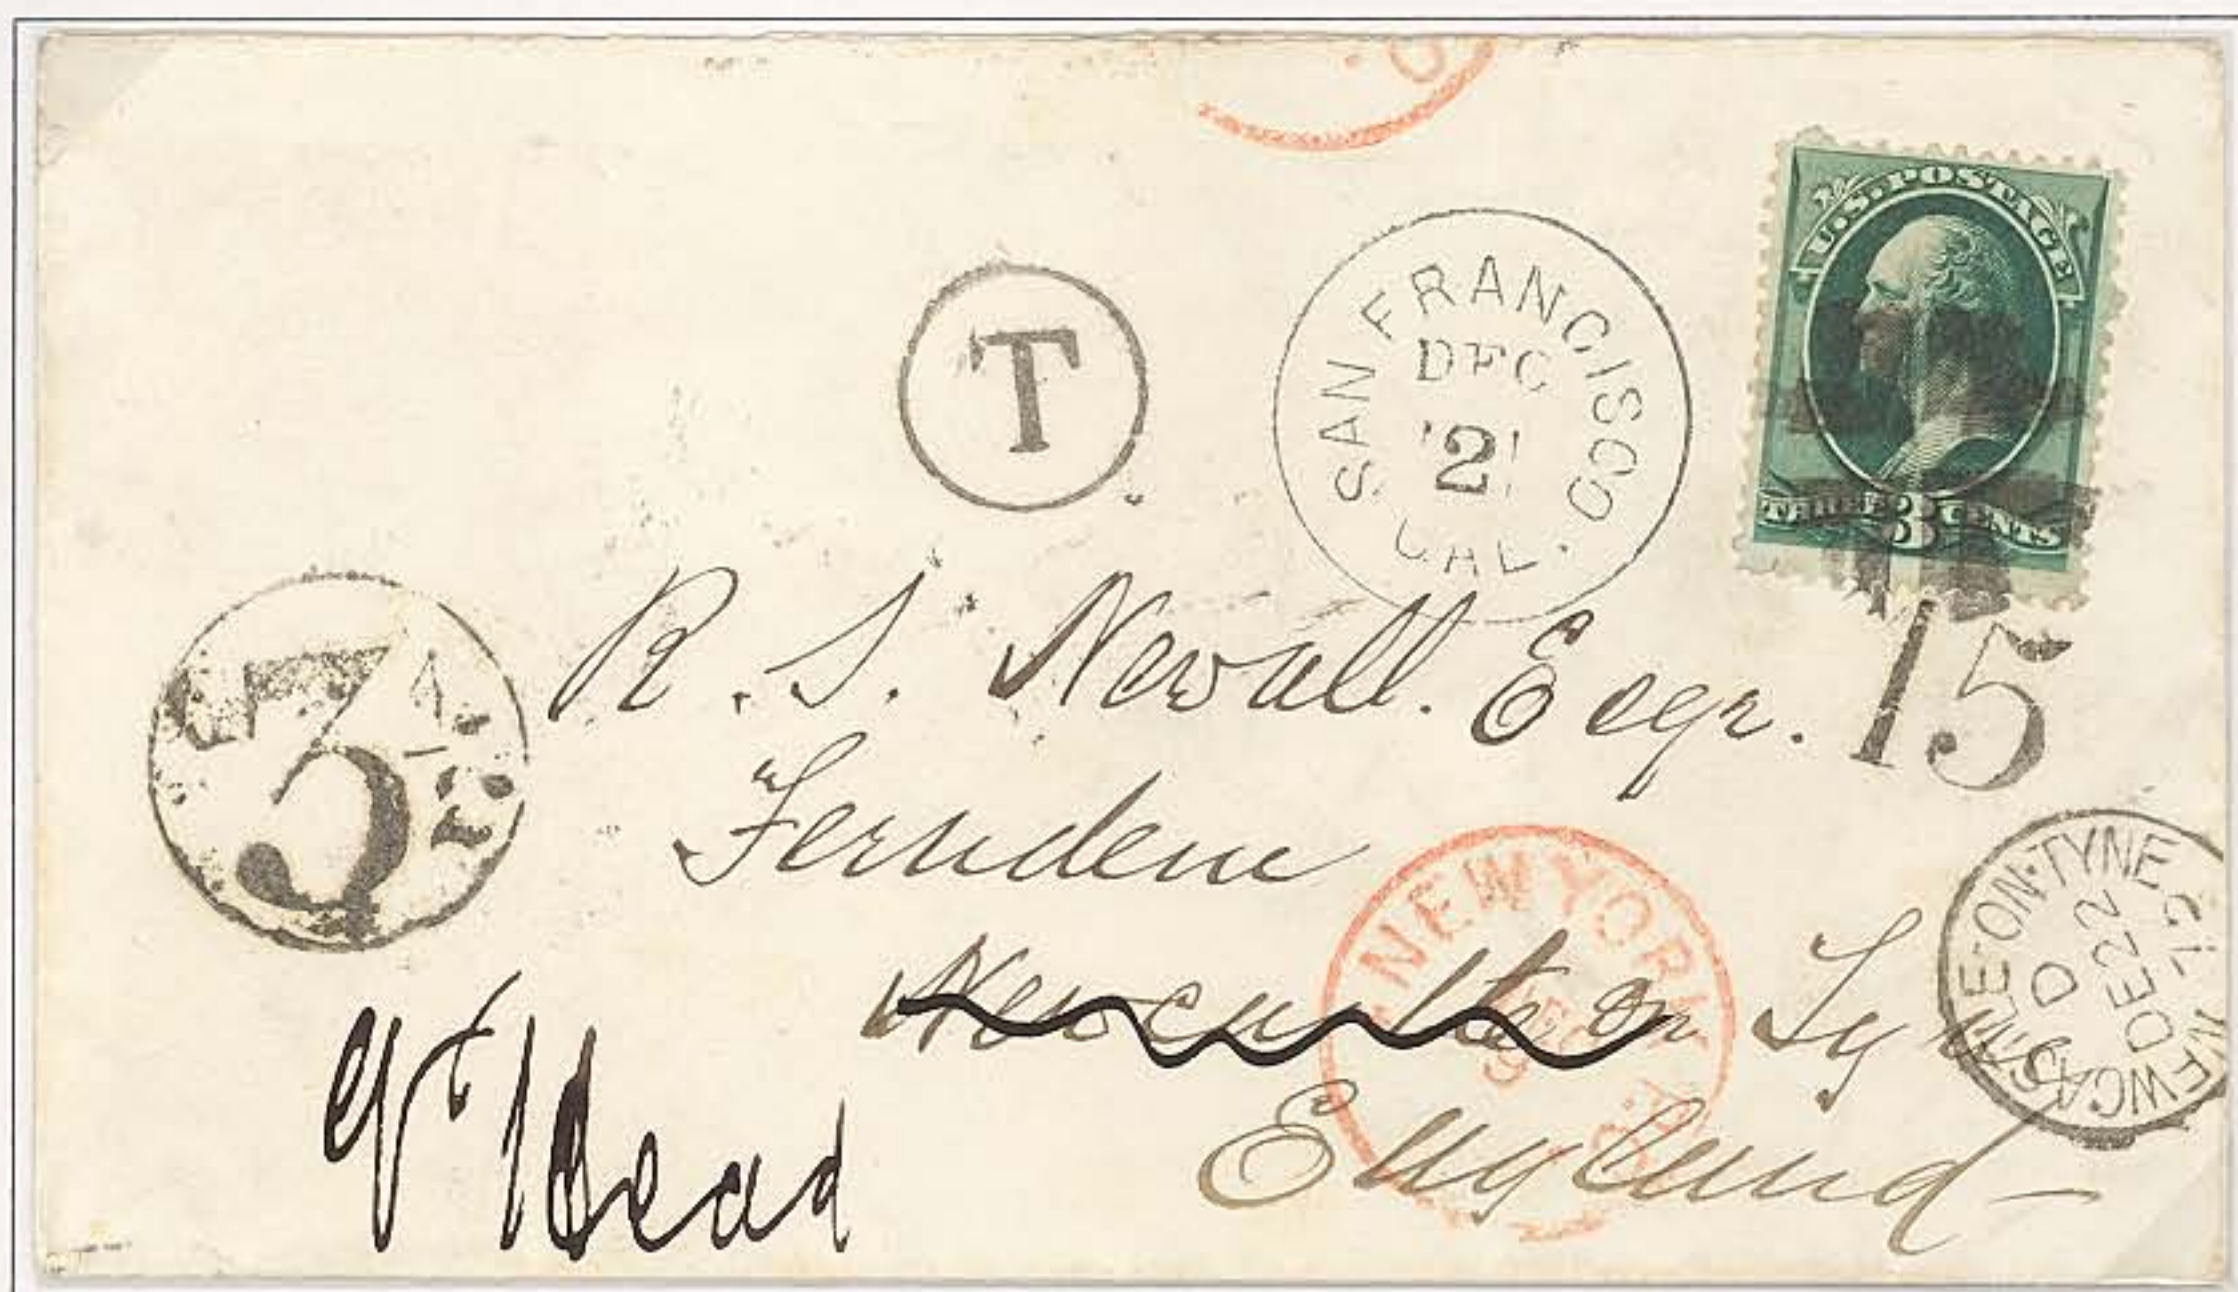 U.S. POSTAGE
THREE 3 CENTS
T
SAN FRANCISCO
DEC
2
CAL.
15
3 1/2
R. S. Newall. Esqr.
Ferndene
Newcastle on Ty
England
NEW YORK
DEC
NEWCASTLE-ON-TYNE
D
DE 22
75
G'tHead